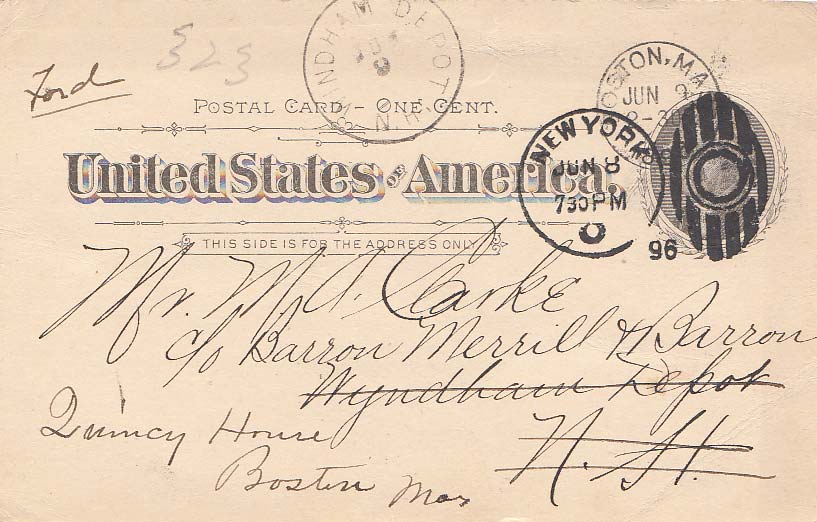 323
Ford
WINDHAM DEPOT
9
N.H.
BOSTON, MA
JUN 9
POSTAL CARD – ONE CENT.
NEW YORK
JUN 8
730PM
96
United States of America.
THIS SIDE IS FOR THE ADDRESS ONLY
Mr. M. A. Clarke
c/o Barron Merrill & Barron
Wyndham Depot
N. H.
Quincy House
Boston Mas